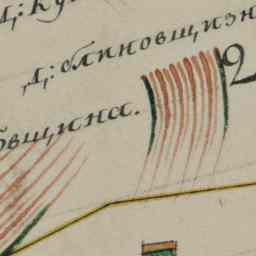 Д: Ку
Д: блиновщизн
овщина.
2